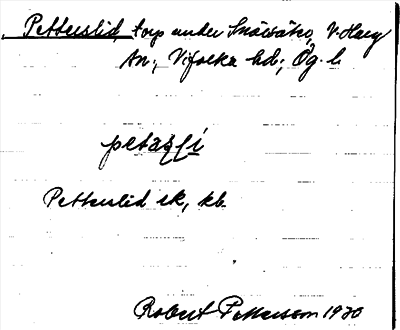 Petterslid, torp under Snåvåko, V. Harg
sn; Vifolka hd; Ög. l.
Petterslid ek, kb.
Robert Pettersson 1930